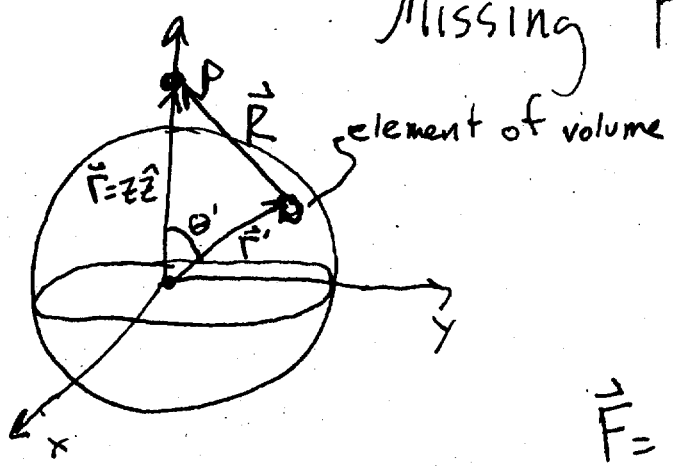 Missing
P
R⃗
element of volume
r⃗=zẑ
θ'
r⃗'
y
x
F⃗=